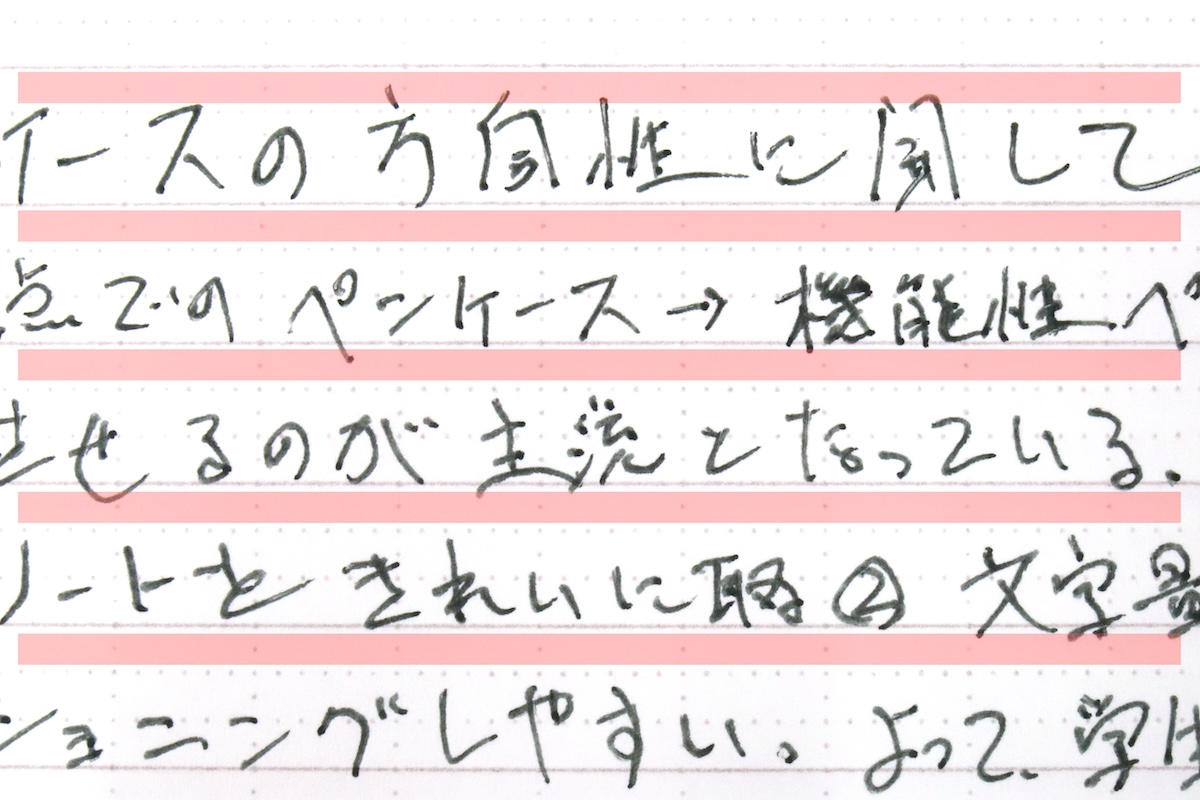 ケースの方向性に関して
点でのペンケース→機能性ペ
させるのが主流となっている.
ノートをきれいに取る② 文字量
ショニングしやすい。よって、学生